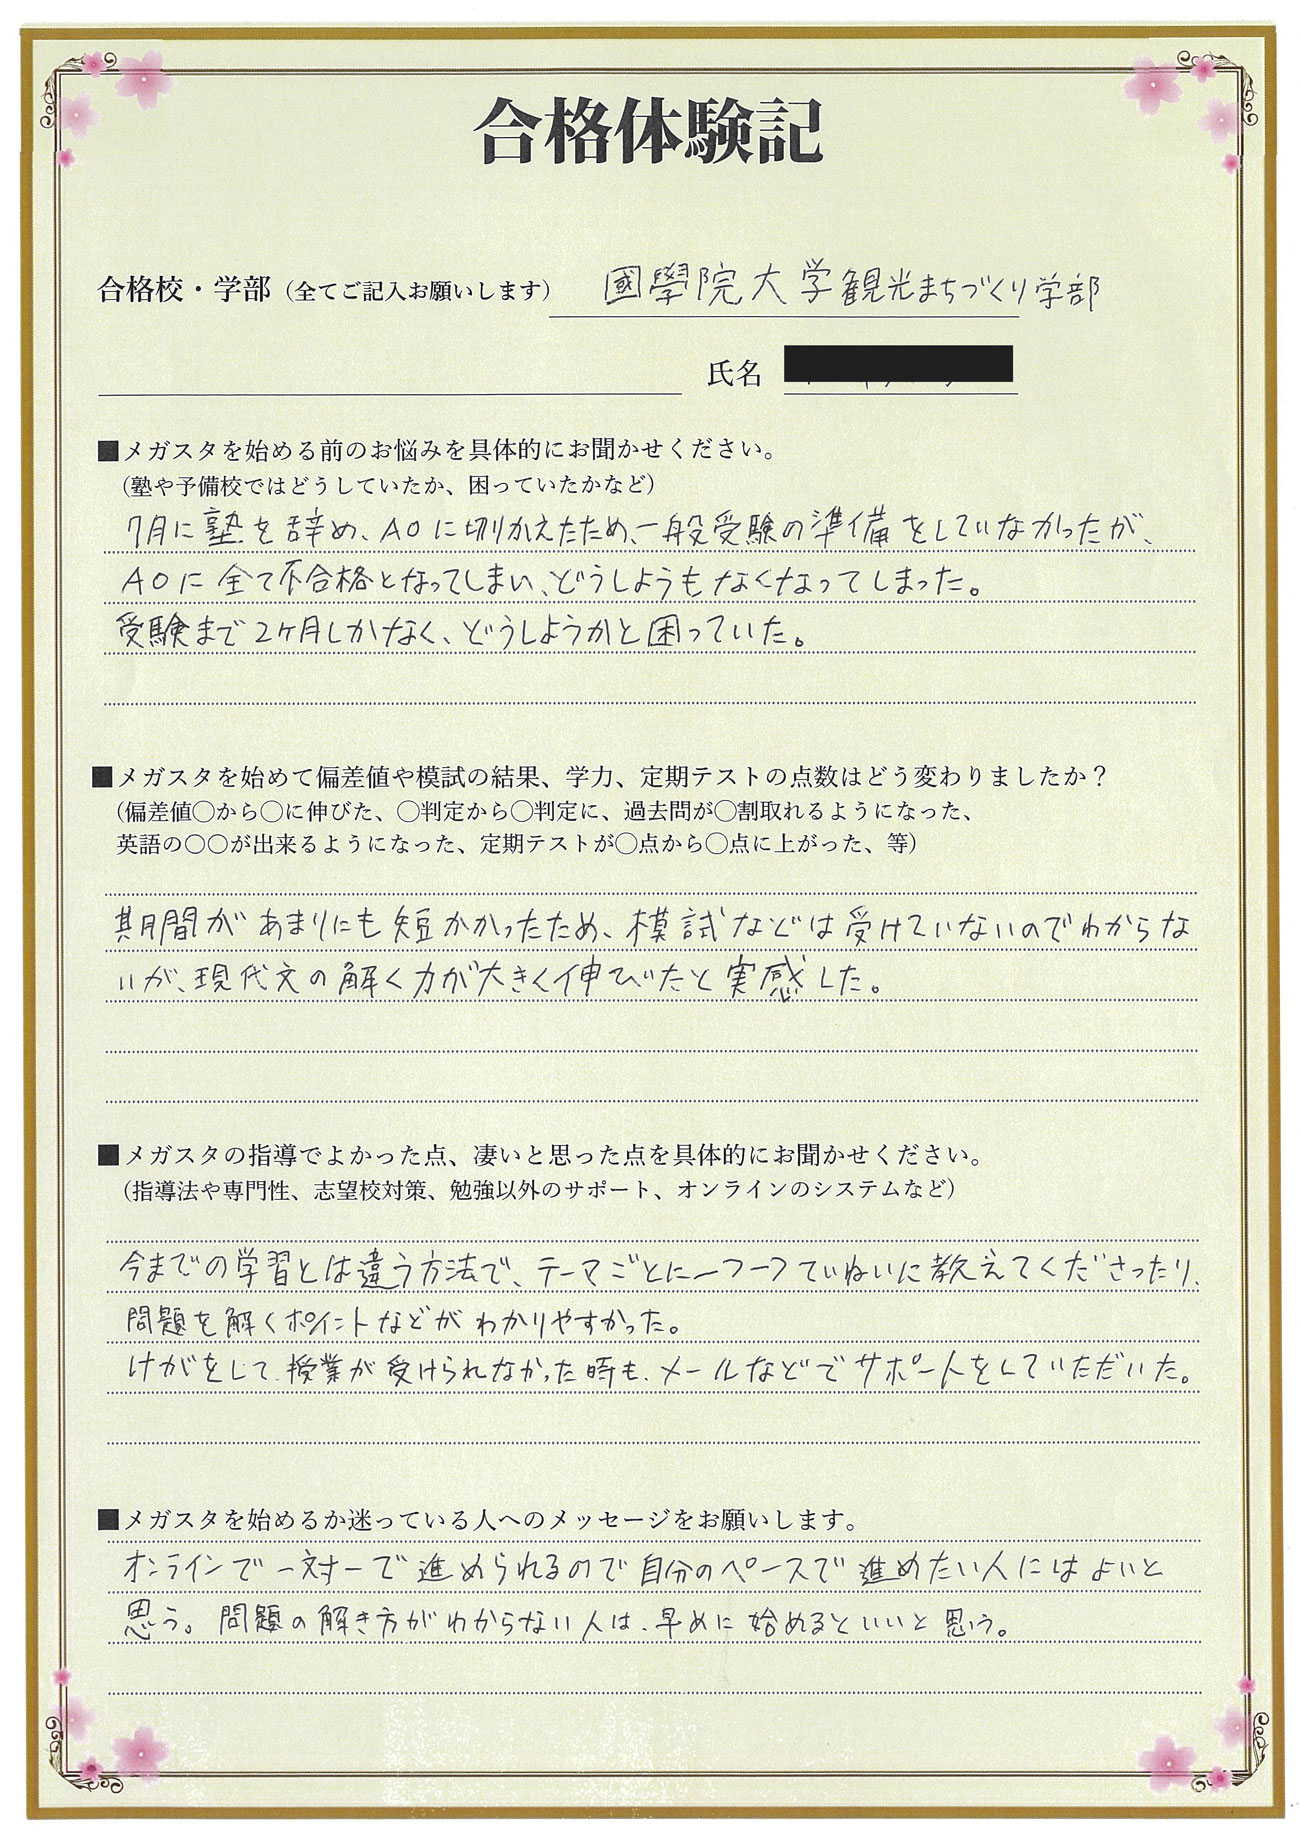 合格体験記
合格校・学部（全てご記入お願いします） 國學院大学観光まちづくり学部
氏名
■メガスタを始める前のお悩みを具体的にお聞かせください。
（塾や予備校ではどうしていたか、困っていたかなど）
7月に塾を辞め、AOに切りかえたため、一般受験の準備をしていなかったが、
AOに全て不合格となってしまい、どうしようもなくなってしまった。
受験まで2ヶ月しかなく、どうしようかと困っていた。
■メガスタを始めて偏差値や模試の結果、学力、定期テストの点数はどう変わりましたか？
（偏差値〇から〇に伸びた、〇判定から〇判定に、過去問が〇割取れるようになった、
英語の〇〇が出来るようになった、定期テストが〇点から〇点に上がった、等）
期間があまりにも短かかったため、模試などは受けていないのでわからな
いが、現代文の解く力が大きく伸びたと実感した。
■メガスタの指導でよかった点、凄いと思った点を具体的にお聞かせください。
（指導法や専門性、志望校対策、勉強以外のサポート、オンラインのシステムなど）
今までの学習とは違う方法で、テーマごとに一つ一つていねいに教えてくださったり、
問題を解くポイントなどがわかりやすかった。
けがをして、授業が受けられなかった時も、メールなどでサポートをしていただいた。
■メガスタを始めるか迷っている人へのメッセージをお願いします。
オンラインで一対一で進められるので自分のペースで進めたい人にはよいと
思う。問題の解き方がわからない人は、早めに始めるといいと思う。